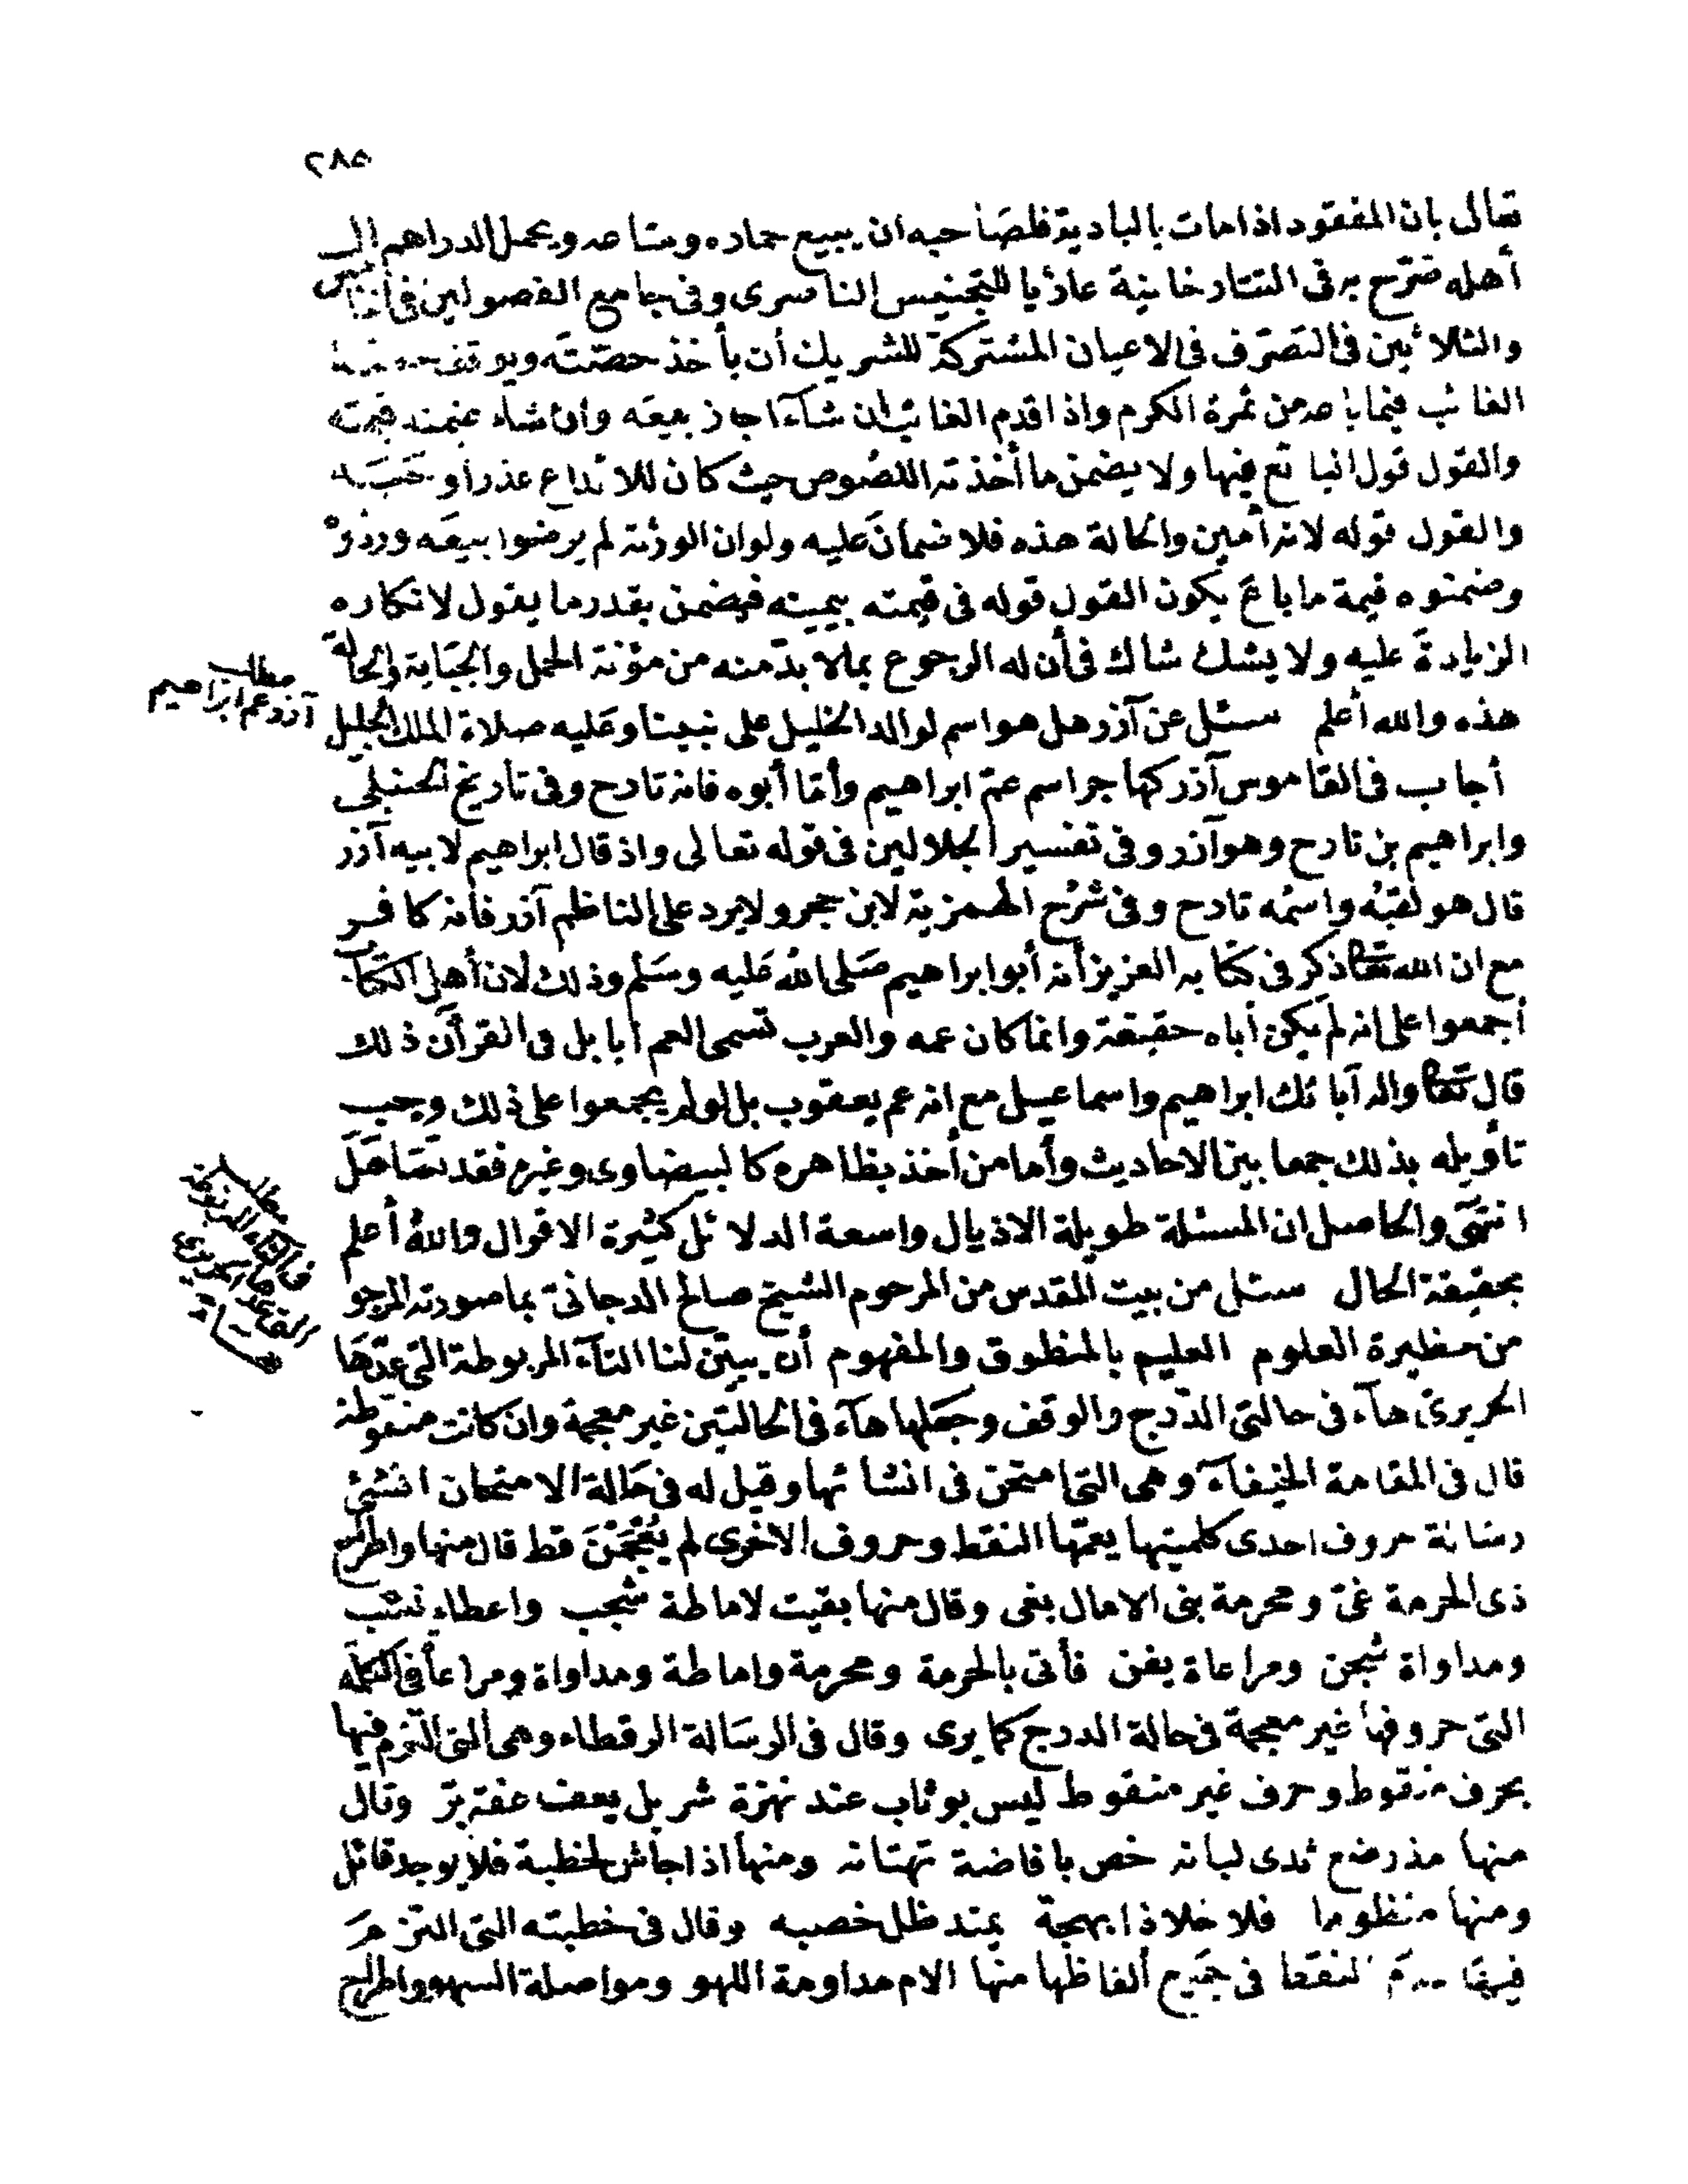 ٢٨٥
تعالى بان المفقود اذا مات بالبادية فلصاحبه ان يبيع حماره ومتاعه ويحمل الدراهم الى
أهله صرّح به فى التتارخانية عازيا للتجنيس الناصرى وفى جامع الفصولين فى
والثلاثين فى التصرّف فى الاعيان المشتركة للشريك أن يأخذ حصّته ويوقف
الغائب فيما باعه من ثمرة الكرم واذا قدم الغائب ان شآء اجاز بيعَه وان شاء ضمنه قيمته
والقول قول البائع فيها ولا يضمن ما أخذته اللصُوص حيث كان للايداع عذرا
والقول قوله لانه أمين والحالة هذه فلا ضمانَ عليه ولو ان الورثة لم يرضوا بيعَه وردوْ
وضمنوه قيمة ما باعَ يكون القول قوله فى قيمته بيمينه فيضمن بقدر ما يقول لانكاره
الزيادةَ عليه ولا يشك شاك فى أن له الرجوع بما لا بدّ منه من مؤنة الحمل والجبَاية والحالة
مطلب
آزر عم ابراهيم
هذه والله أعلم سئل عن آزر هل هو اسم لوالد الخليل على نبينا وعَليه صلاة الملك الجليل
أجاب فى القاموس آزر كهاجر اسم عمّ ابراهيم وأمّا أبوه فانه تارح وفى تاريخ الحنبلى
وابراهيم بن تارح وهو آزر وفى تفسير الجلالين فى قوله تعالى واذ قال ابراهيم لابيه آزر
قال هو لقبُه واسمُه تارح وفى شرْح الهمزية لابن حجر ولا يرد على الناظم آزر فانه كافر
مع ان الله تعالى ذكر فى كتابه العزيز أنه أبو ابراهيم صَلى اللهُ عَليه وسَلم وذلك لان أهل الكتاب
أجمعوا على انه لم يكن أباه حقيقة وانما كان عمه والعرب تسمى العم أبا بل فى القرآن ذلك
قال تعالى واله آبائك ابراهيم واسماعيل مع انه عم يعقوب بل لو لم يجمعوا على ذلك وجب
تأويله بذلك جمعا بين الاحاديث وأما من أخذ بظاهره كالبيضاوى وغيره فقد تسَاهَلَ
انتهَى والحاصل ان المسئلة طويلة الاذيال واسعة الدلائل كثيرة الاقوال واللهُ أعلم
مطلب
فى التاء المربوطة
التى عدها الحريرى
هاء
بحقيقة الحال سئل من بيت المقدس من المرحوم الشيخ صالح الدجانىّ بما صورته المرجو
من حظيرة العلوم العليم بالمنطوق والمفهوم أن يبيّن لنا التآء المربوطة التى عدّهَا
الحريرىّ هآء فى حالتى الدّرج والوقف وجَعَلها هآء فى الحالتين غير معجمة وان كانت منقوطة
قال فى المقامة الخيفآء وهى التى امتحن فى انشائها وقيل له فى حَالة الامتحان انشئ
رسالة حروف احدى كلمتيها يعمّها النقط وحروف الاخرى لم يُعْجَمْنَ قط قال منها واطراح
ذى الحرمة غىّ ومحرمة بنى الامال بغى وقال منها بقيت لاماطة شجب واعطاء نشب
ومداواة شجن ومراعاة يفن فأتى بالحرمة ومحرمة واماطة ومداواة ومراعاة فى الكلمة
التى حروفها غير معجمة فى حالة الدرج كما يرى وقال فى الرسَالة الرقطاء وهى التى التزم فيها
بحرف منقوط وحرف غير منقوط ليس بوثاب عند نهزة شر بل يعف عفة برّ وقال
منها مذ رضع ثدى لبانه خص بافاضة تهتانه ومنها اذا جاش لخطبة فلا يوجد قائل
ومنها منظوما فلا خلا ذا بهجة يمتد ظل خصبه وقال فى خطبته التى التزمَ
فيهَا عدم النقط فى جَميع ألفاظها منها الام مداومة اللهو ومواصلة السهو واطراح